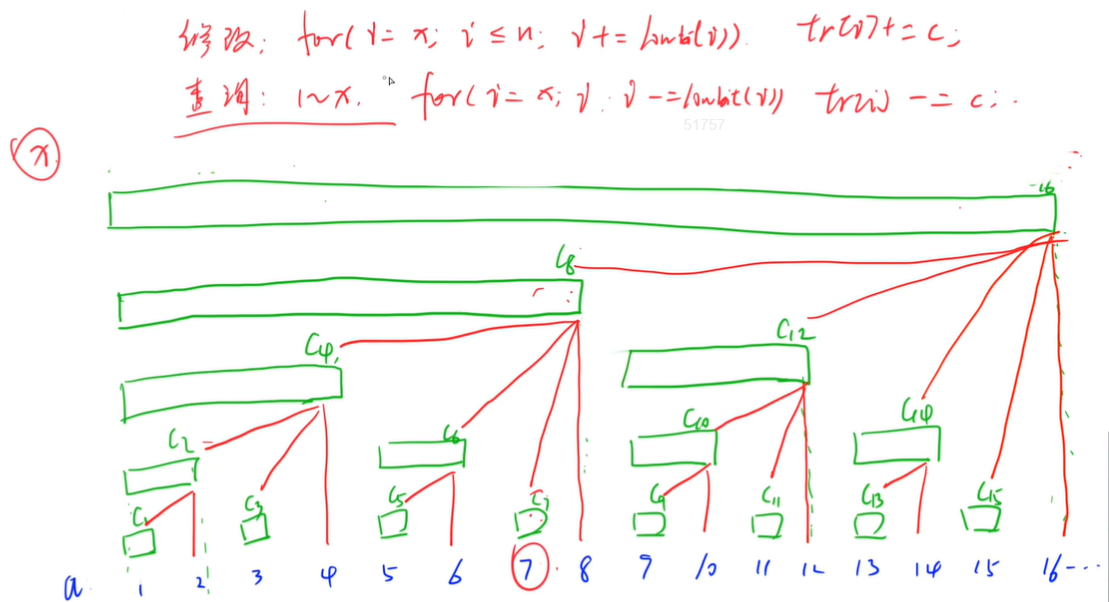 修改: for(i = x; i ≤ n; i += lowbit(i)) tr[i] += c;
查询: 1~x. for(i = x; i; i -= lowbit(i)) tr[i] -= c;
51757
x
16
C8
C12
C4
C14
C10
C6
C2
C1 C3 C5 C7 C9 C11 C13 C15
a 1 2 3 4 5 6 7 8 9 10 11 12 13 14 15 16 ---